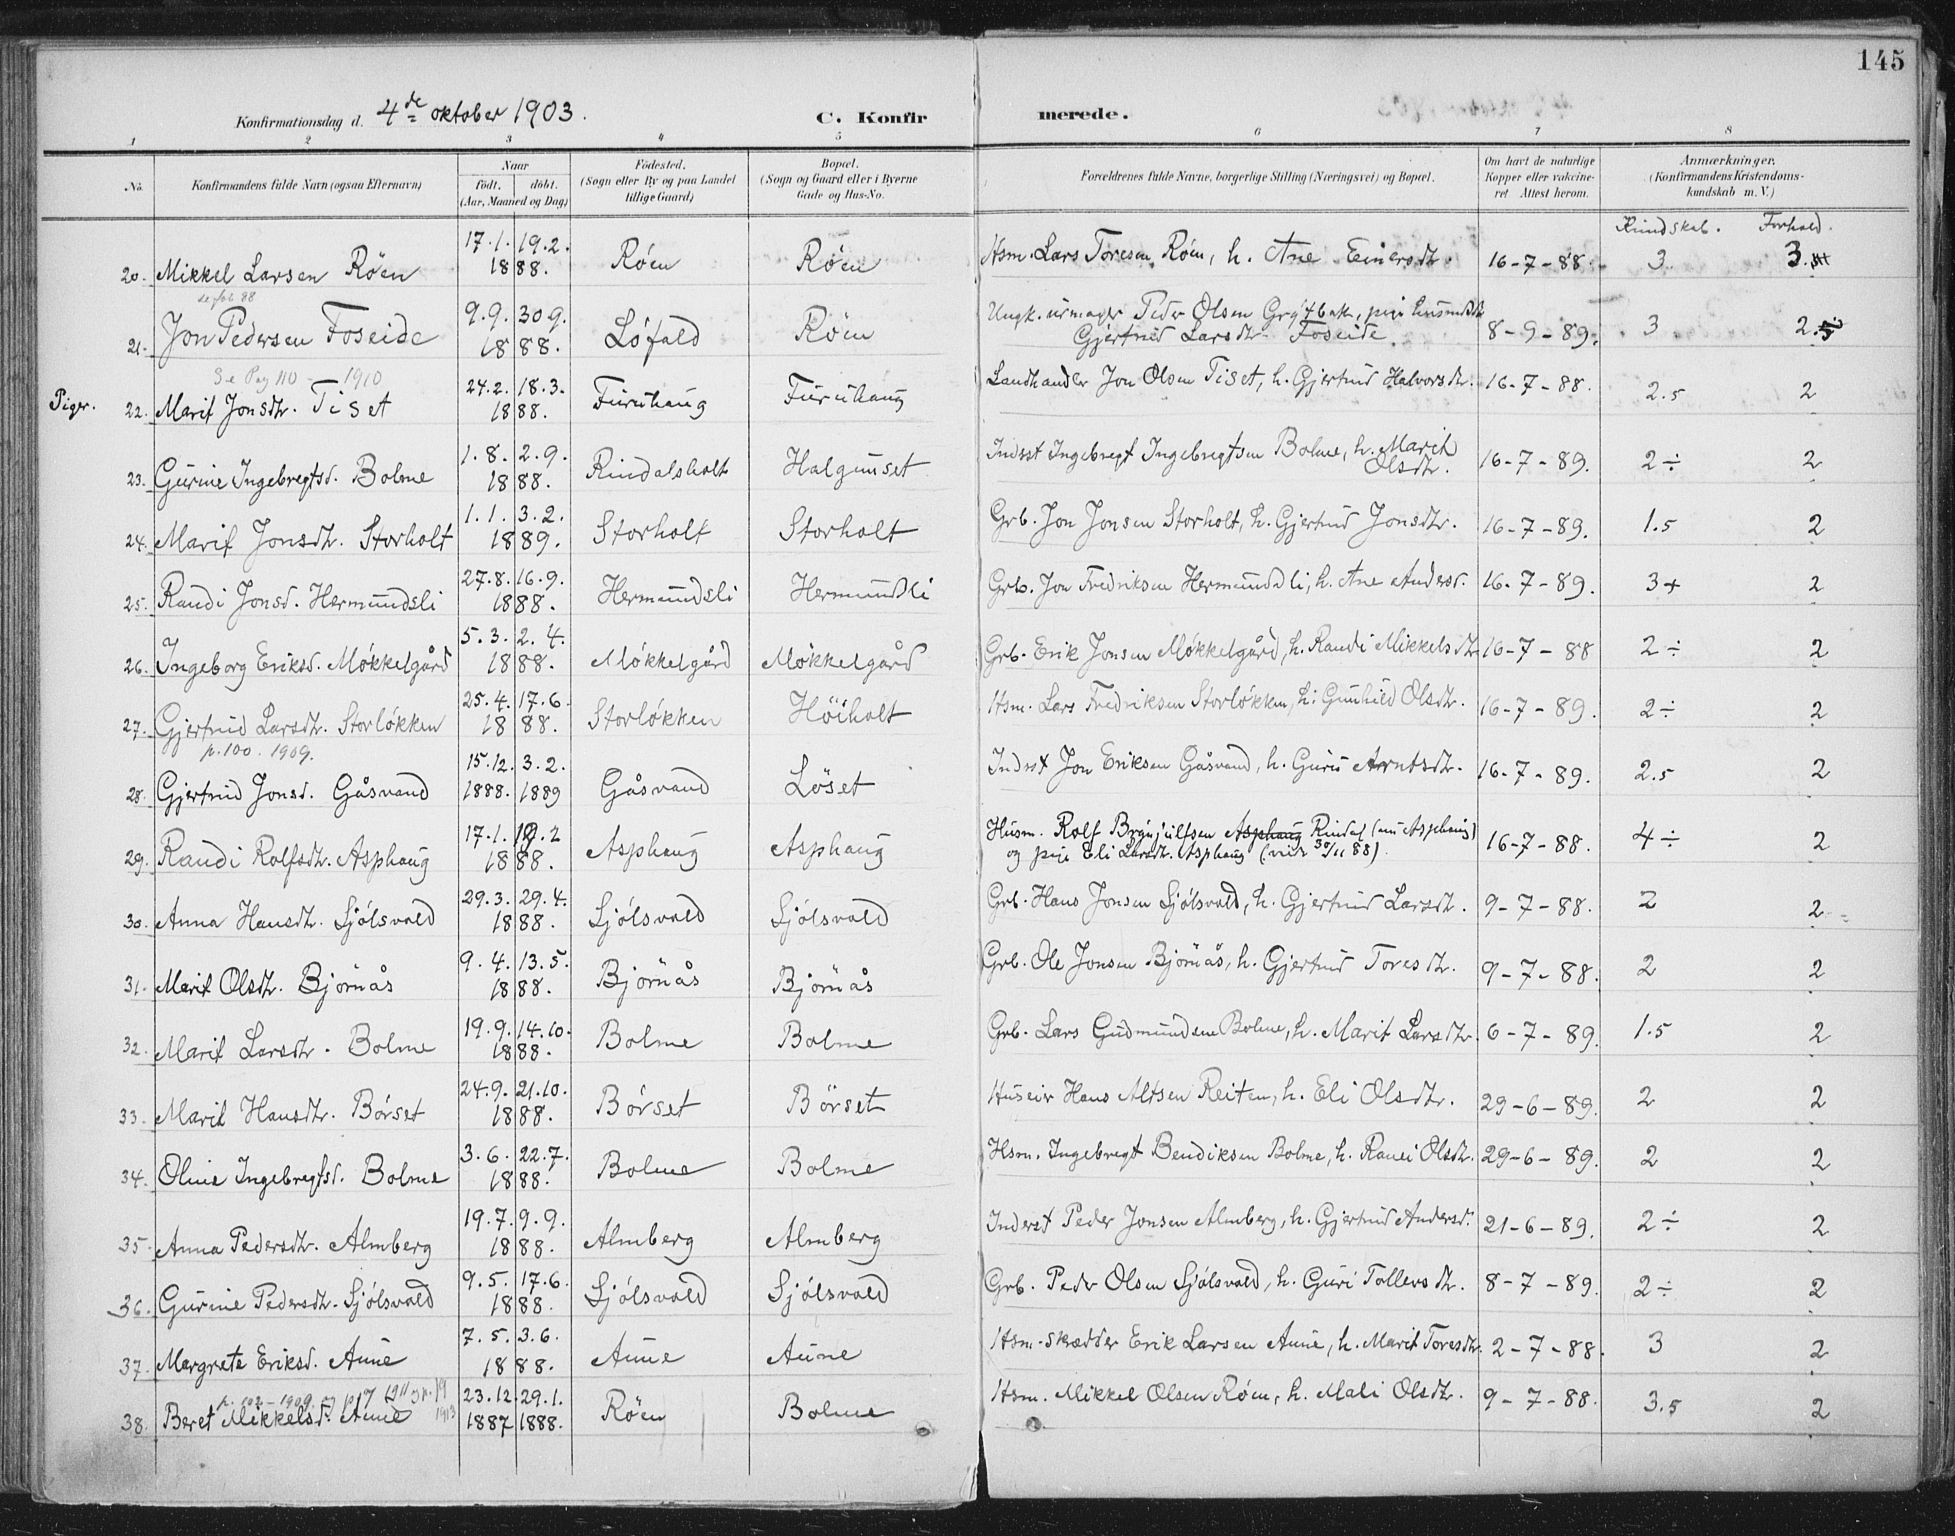 145
Konfirmationsdag d. 4de oktober 1903.
C. Konfirmerede.
1 2 3 4 5 6 7 8
No. Konfirmandens fulde Navn (ogsaa Efternavn)
Naar
födt. döbt.
(Aar, Maaned og Dag)
Födested.
(Sogn eller By og paa Landet
tillige Gaard)
Bopæl.
(Sogn og Gaard eller i Byerne
Gade og Hus-No.
Forældrenes fulde Navne, borgerlige Stilling (Næringsvei) og Bopæl.
Om havt de naturlige
Kopper eller vakcine-
ret Attest herom.
Anmærkninger.
(Konfirmandens Kristendoms-
kundskab m. V.)
Kundskab. Forhold.
20. Mikkel Larsen Röen 17.1. 19.2. 1888. Röen Röen Hsm. Lars Toresen Röen, h. Ane Einersdtr. 16-7-88. 3 3.
21. Jon Pedersen Foseide 9.9. 30 9. 1888. Löfald Röen Ungk. urmager Peder Olsen, pige
Gjertrud Larsdtr Foseide. 8-9-89. 3 2.
Se Pag 110 - 1910
Piger.
22. Marit Jonsdtr. Tiset 24.2. 18.3. 1888. Furuhaug Furuhaug Landhandler Jon Olsen Tiset, h. Gjertrud Halvorsdtr. 16-7-88. 2.5 2
23. Gurine Ingebregtsd. Bolme 1.8. 2.9. 1888. Rindalsholt Halgunset Inderst Ingebregt Ingebregtsen Bolme, h. Marit
Olsdtr. 16-7-89. 2÷ 2
24. Marit Jonsdtr. Storholt 1.1. 3.2. 1889. Storholt Storholt Grb. Jon Jonsen Storholt, h. Gjertrud Jonsdtr. 16-7-89. 1.5 2
25. Randi Jonsd. Hermundsli 27.8. 16.9. 1888. Hermundsli Hermundsli Grb. Jon Fredriksen Hermundsli, h. Ane Andersd. 16-7-89. 3+ 2
26. Ingeborg Eriksd. Mökkelgård 5.3. 2.4. 1888. Mökkelgård Mökkelgård Grb. Erik Jonsen Mökkelgård, h. Randi Mikkelsdtr 16-7-88 2÷ 2
27. Gjertrud Larsdtr. Storlökken 25.4. 17.6. 1888. Storlökken Höiholt Hsm. Lars Fredriksen Storlökken, h. Gunhild Olsdtr. 16-7-89. 2÷ 2
p. 100. 1909.
28. Gjertrud Jonsd. Gåsvand 15.12. 3.2. 1888. 1889 Gåsvand Löset Inderst Jon Eriksen Gåsvand, h. Guru Arntsdtr. 16-7-89. 2.5 2
29. Randi Rolfsdtr. Asphaug 17.1. 19.2 1888. Asphaug Asphaug Husm. Rolf Brynjulfsen Asphaug Rindal (nu Asphaug)
og pige Eli Larsdtr. Asphaug (viet 30/11 88) 16-7-88. 4÷ 2
30. Anna Hansdtr. Sjölsvold 29.3. 29.4. 1888. Sjölsvold Sjölsvold Grb. Hans Jonsen Sjölsvold, h. Gjertrud Larsdtr. 9-7-88. 2 2
31. Marit Olsdtr. Björnås 9.4. 13.5. 1888. Björnås Björnås Grb. Ole Jonsen Björnås, h. Gjertrud Toresdtr. 9-7-88. 2 2
32. Marit Larsdtr. Bolme 19.9. 14.10. 1888. Bolme Bolme Grb. Lars Gudmundsen Bolme, h. Marit Larsdtr. 6-7-89. 1.5 2
33. Marit Hansdtr. Börset 24.9. 21.10. 1888. Börset Börset Huseier Hans Altsen Reiten, h. Eli Olsdtr. 29-6-89. 2 2
34. Oline Ingebregtsd. Bolme 3.6. 22.7. 1888. Bolme Bolme Hsm. Ingebregt Bendiksen Bolme, h. Randi Olsdtr. 29-6-89. 2 2
35. Anna Pedersdtr. Almberg 19.7. 9.9. 1888. Almberg Almberg Inderst Peder Jonsen Almberg, h. Gjertrud Andersd. 21-6-89. 2÷ 2
36. Gurine Pedersdtr. Sjölsvold 9.5. 17.6. 1888. Sjölsvold Sjölsvold Grb. Peder Olsen Sjölsvold, h. Guri Tollevsdtr. 8-7-89. 2÷ 2
37. Margrete Eriksd. Aune 7.5. 3.6. 1888. Aune Aune Hsm.-skrædder Erik Larsen Aune, h. Marit Toresdtr. 2-7-88. 3 2
p. 102-1909.
38. Beret Mikkelsd. Aune 23.12. 29.1. 1887 1888. Röen Bolme Hsm. Mikkel Olsen Röen, h. Mali Olsdtr. 9-7-88. 3.5 2